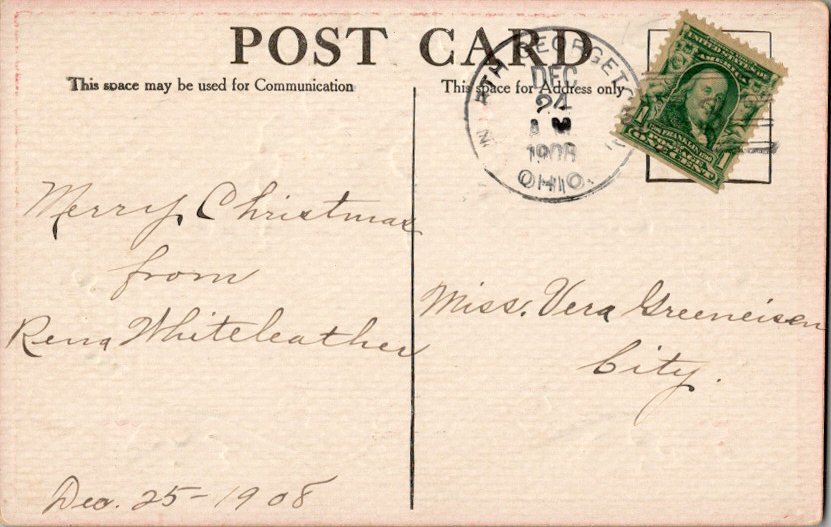 POST CARD
This space may be used for Communication
This space for Address only
NORTH GEORGETOWN
DEC
24
A M
1908
OHIO.
UNITED STATES OF
AMERICA
FRANKLIN
1 1
ONE CENT
Merry Christmas
from
Rena Whiteleather
Dec. 25-1908
Miss. Vera Greeneisen
City.